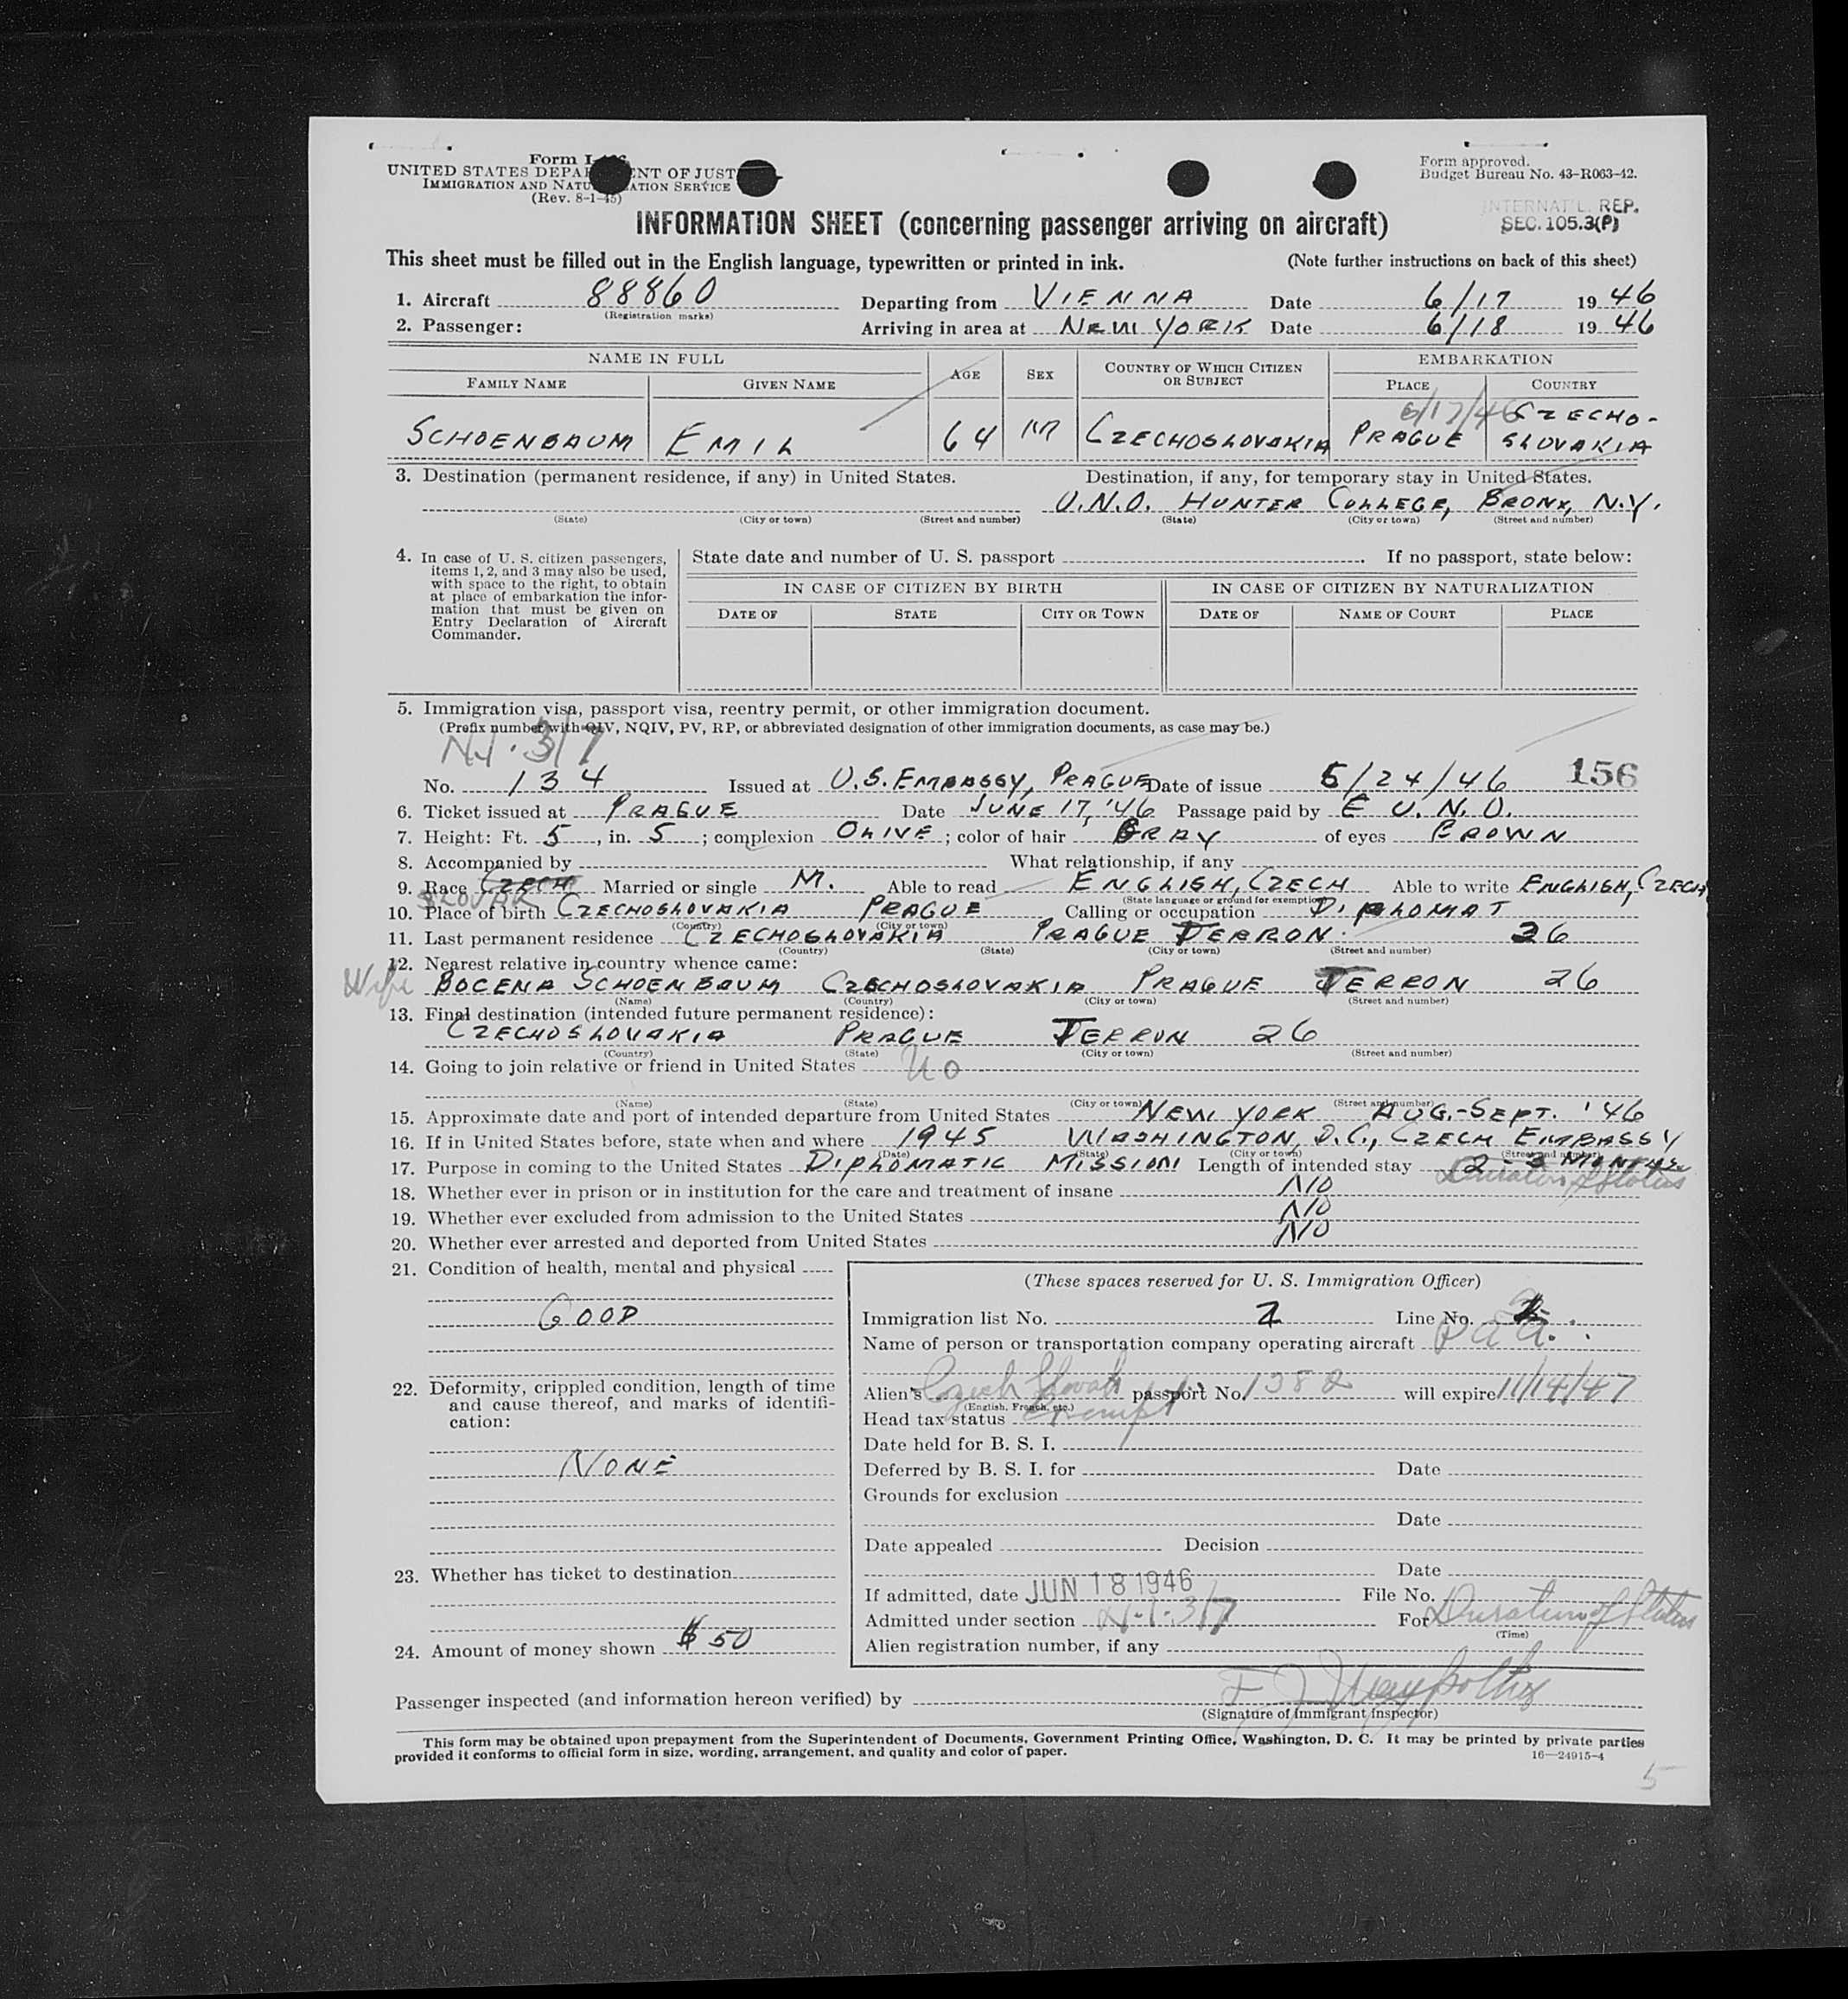 Form I-
UNITED STATES DEPARTMENT OF JUST
IMMIGRATION AND NATURALIZATION SERVICE
(Rev. 8-1-45)
Form approved.
Budget Bureau No. 43-R063-42.
INTERNAT'L. REP.
SEC. 105.3(P)
INFORMATION SHEET (concerning passenger arriving on aircraft)
This sheet must be filled out in the English language, typewritten or printed in ink. (Note further instructions on back of this sheet)
1. Aircraft 88860 Departing from VIENNA Date 6/17 1946
(Registration marks)
2. Passenger: Arriving in area at NEW YORK Date 6/18 1946
NAME IN FULL AGE SEX COUNTRY OF WHICH CITIZEN OR SUBJECT EMBARKATION
FAMILY NAME GIVEN NAME PLACE COUNTRY
6/17/46
SCHOENBAUM EMIL 64 M CZECHOSLOVAKIA PRAGUE CZECHO-
SLOVAKIA
3. Destination (permanent residence, if any) in United States. Destination, if any, for temporary stay in United States.
U.N.O. HUNTER COLLEGE, BRONX, N.Y.
(State) (City or town) (Street and number) (State) (City or town) (Street and number)
4. In case of U. S. citizen passengers,
items 1, 2, and 3 may also be used,
with space to the right, to obtain
at place of embarkation the infor-
mation that must be given on
Entry Declaration of Aircraft
Commander.
State date and number of U. S. passport . If no passport, state below:
IN CASE OF CITIZEN BY BIRTH IN CASE OF CITIZEN BY NATURALIZATION
DATE OF STATE CITY OR TOWN DATE OF NAME OF COURT PLACE
5. Immigration visa, passport visa, reentry permit, or other immigration document.
(Prefix number with QIV, NQIV, PV, RP, or abbreviated designation of other immigration documents, as case may be.)
3/7
No. 134 Issued at U.S. EMBASSY, PRAGUE Date of issue 5/24/46 156
6. Ticket issued at PRAGUE Date JUNE 17, '46 Passage paid by E U.N.O.
7. Height: Ft. 5, in. 5; complexion OLIVE; color of hair GRAY of eyes BROWN
8. Accompanied by What relationship, if any
9. Race CZECH Married or single M. Able to read ENGLISH, CZECH Able to write ENGLISH, CZECH
SLOVAK (State language or ground for exemption)
10. Place of birth CZECHOSLOVAKIA PRAGUE Calling or occupation DIPLOMAT
(Country) (City or town)
11. Last permanent residence CZECHOSLOVAKIA PRAGUE TERRON 26
(Country) (State) (City or town) (Street and number)
12. Nearest relative in country whence came:
Wife BOCENA SCHOENBAUM CZECHOSLOVAKIA PRAGUE TERRON 26
(Name) (Country) (City or town) (Street and number)
13. Final destination (intended future permanent residence):
CZECHOSLOVAKIA PRAGUE TERRON 26
(Country) (State) (City or town) (Street and number)
14. Going to join relative or friend in United States No
(Name) (State) (City or town) (Street and number)
15. Approximate date and port of intended departure from United States NEW YORK AUG.-SEPT. '46
16. If in United States before, state when and where 1945 WASHINGTON, D.C., CZECH EMBASSY
(Date) (State) (City or town) (Street and number)
17. Purpose in coming to the United States DIPLOMATIC MISSION Length of intended stay 2-3 MONTHS
Duration of Status
18. Whether ever in prison or in institution for the care and treatment of insane NO
19. Whether ever excluded from admission to the United States NO
20. Whether ever arrested and deported from United States NO
21. Condition of health, mental and physical
GOOD
22. Deformity, crippled condition, length of time
and cause thereof, and marks of identifi-
cation:
NONE
23. Whether has ticket to destination
24. Amount of money shown $50
(These spaces reserved for U. S. Immigration Officer)
Immigration list No. 2 Line No. 2
Name of person or transportation company operating aircraft P.A.A.
Alien's Czech Slovak passport No. 1382 will expire 11/14/47
(English, French, etc.)
Head tax status Exempt
Date held for B. S. I.
Deferred by B. S. I. for Date
Grounds for exclusion
Date
Date appealed Decision
Date
If admitted, date JUN 18 1946 File No.
Admitted under section 3/7 For Duration of Status
(Time)
Alien registration number, if any
Passenger inspected (and information hereon verified) by
(Signature of Immigrant Inspector)
This form may be obtained upon prepayment from the Superintendent of Documents, Government Printing Office, Washington, D. C. It may be printed by private parties
provided it conforms to official form in size, wording, arrangement, and quality and color of paper. 16—24915-4
5